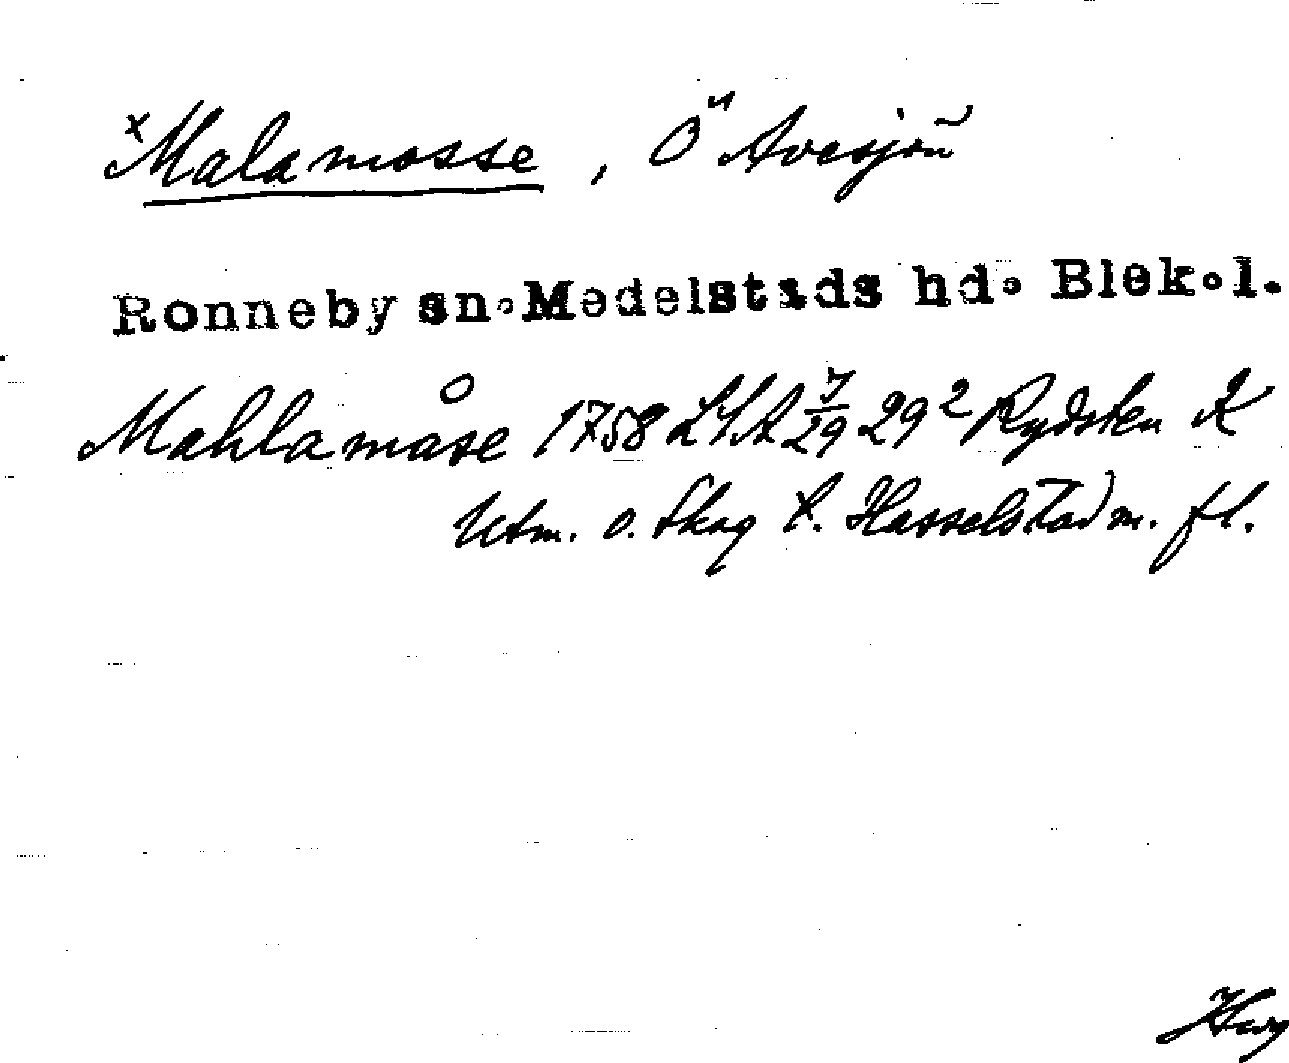 xMalamosse, Ö Avesjön
Ronneby sn. Medelstads hd. Blek.l.
Mahlamåse 1758 LSA 7/29 29² Rydsken K
Utm. o. Skog t. Hasselstad m. fl.